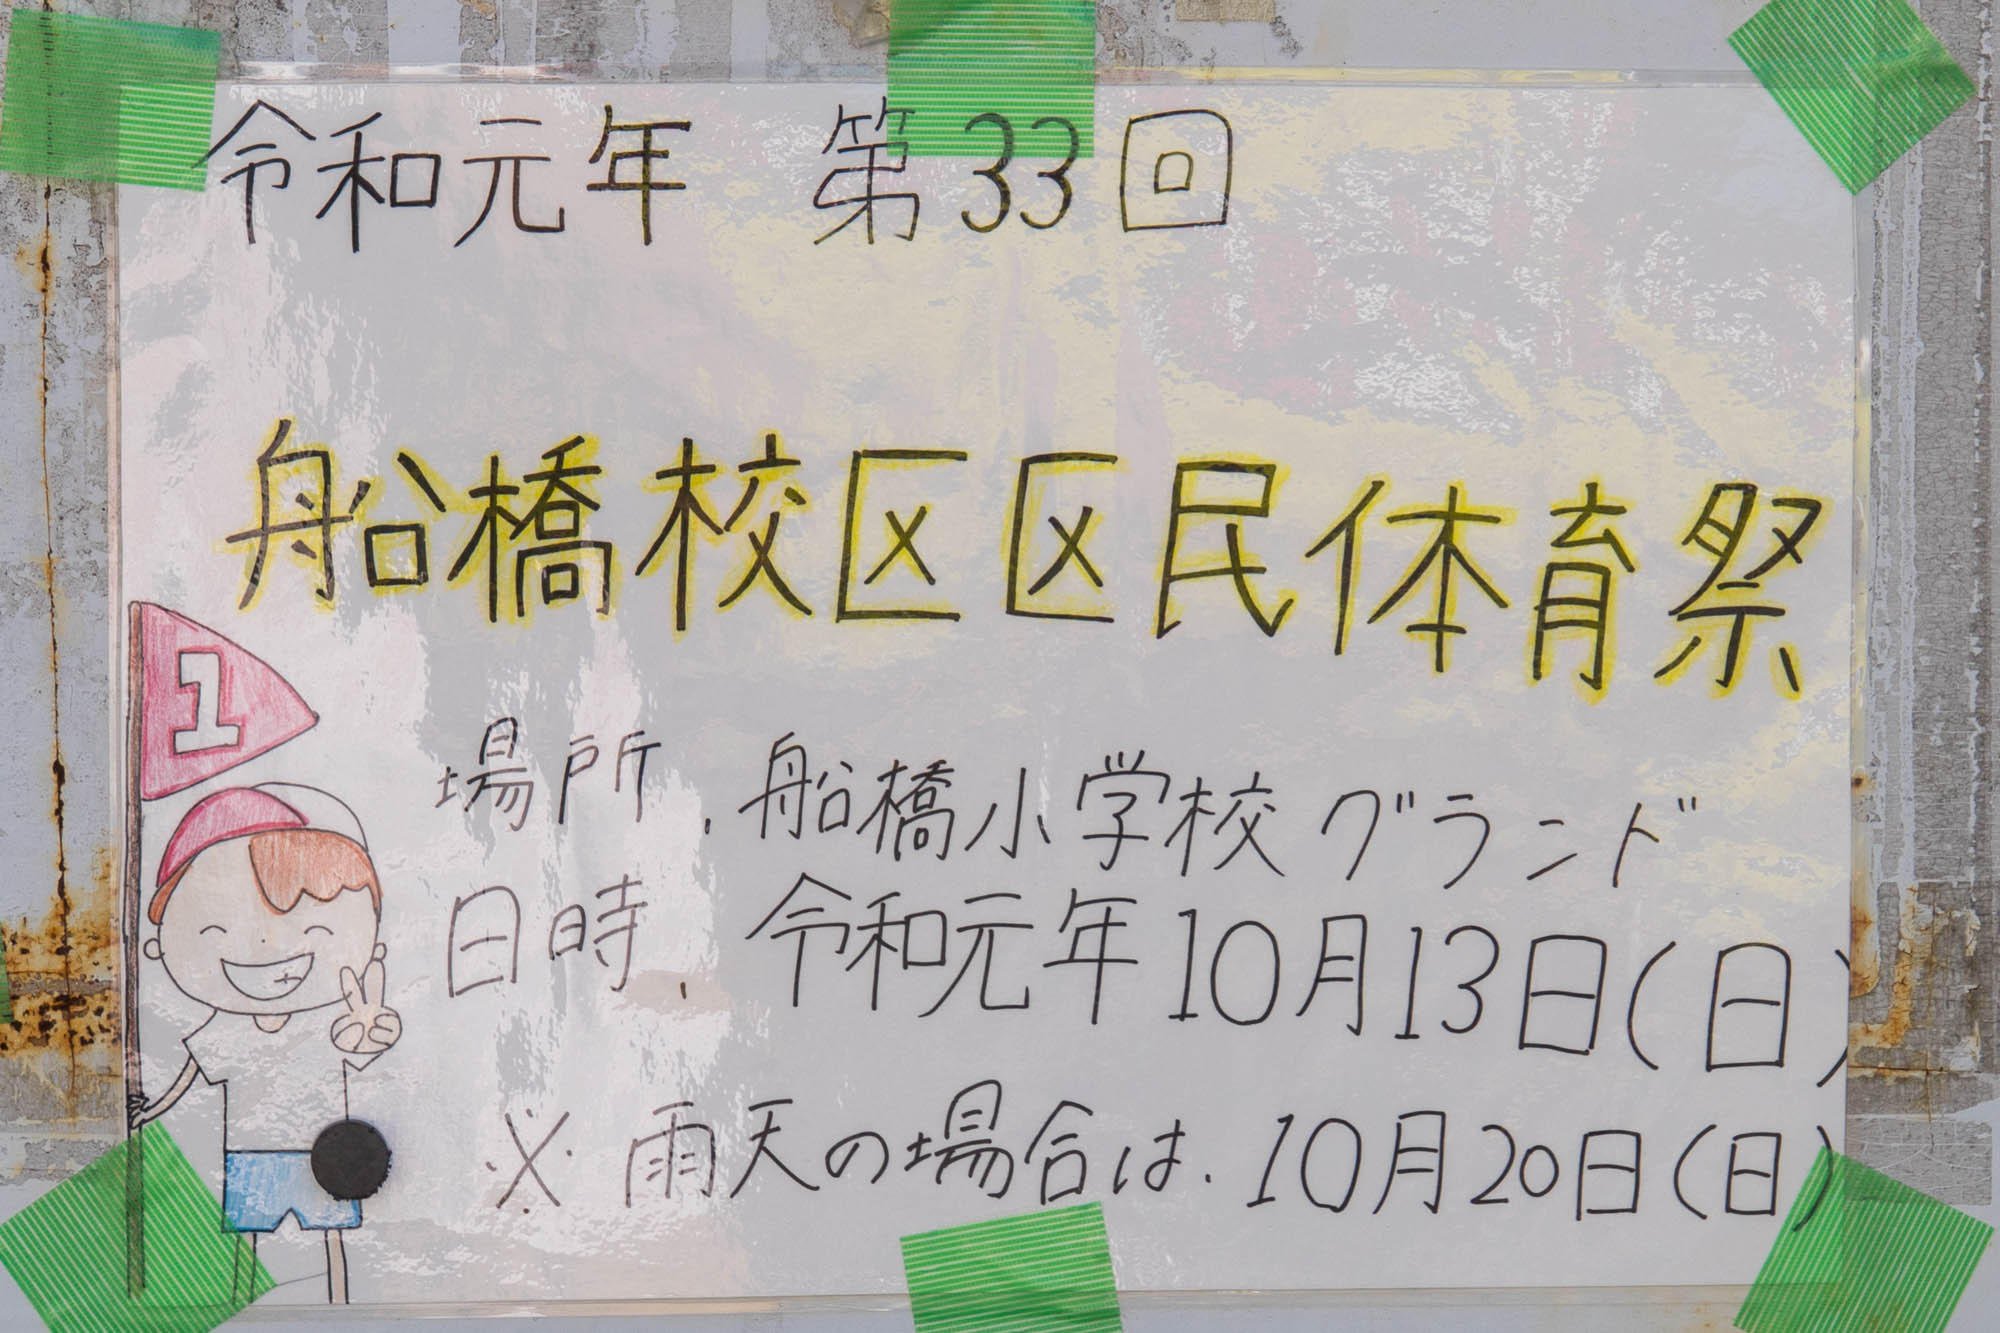 令和元年 第33回
船橋校区区民体育祭
1
場所、船橋小学校グランド
日時、令和元年10月13日(日)
※雨天の場合は、10月20日(日)